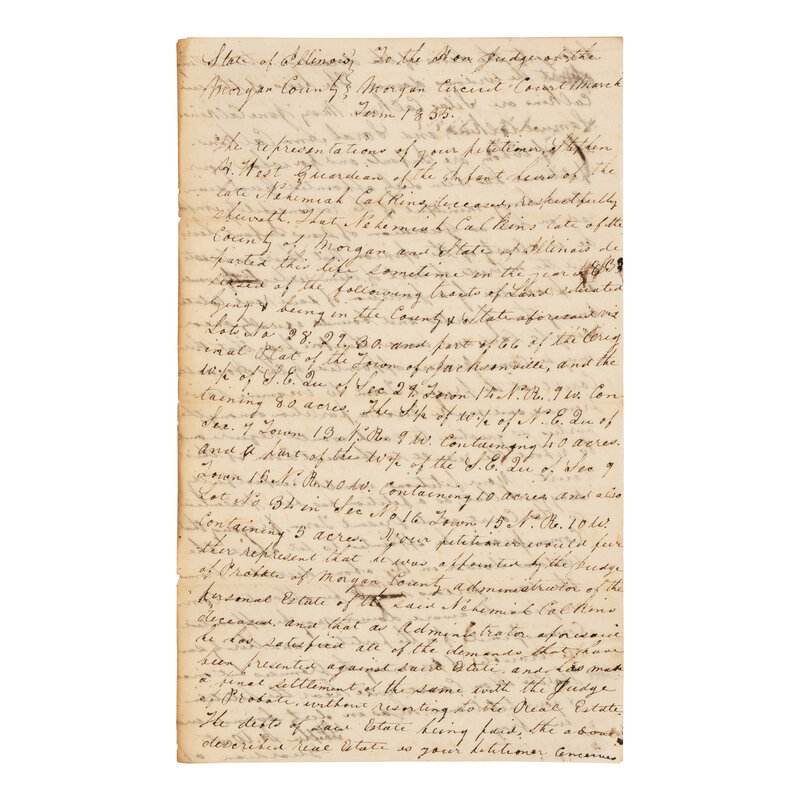 State of Illinois } To the Hon Judge of the
Morgan County } Morgan Circuit Court March
Term 1835.
The representations of your petitioner, Stephen
H. West Guardian of the infant heirs of the
late Nehemiah Calkins, deceased, respectfully
sheweth. That Nehemiah Calkins late of the
County of Morgan and State of Illinois de
parted this life sometime in the year 183
seised of the following tracts of Land situated
lying & being in the County & State aforesaid viz
Lots No 28. 29. 30. and part of 66 of the Orig
inal Plat of the Town of Jacksonville, and the
W½ of S. E. Qu of Sec 29. Town 14 N. R. 9 W. Con
taining 80 acres. The of W½ of N. E. Qu of
Sec. 7 Town 13 N. R. 9 W. Containgng 40 acres.
and a part of the W½ of the S. E. Qu of Sec 9
Town 15 N. R. 10 W. Containing 10 acres and also
Lot No 34 in Sec No 16 Town 15 N. R. 10 W.
Containing 5 acres. Your petitioner would fur
ther represent that he was appointed by the Judge
of Probate of Morgan County administrator of the
personal Estate of the said Nehemiah Calkins
deceased. and that as Administrator aforesaid
he has satisfied all of the demands that have
been presented against said Estate, and has made
a final settlement of the same with the Judge
of Probate, without resorting to the Real Estate.
The debts of said Estate being paid, the above
described real Estate as your petitioner conceives